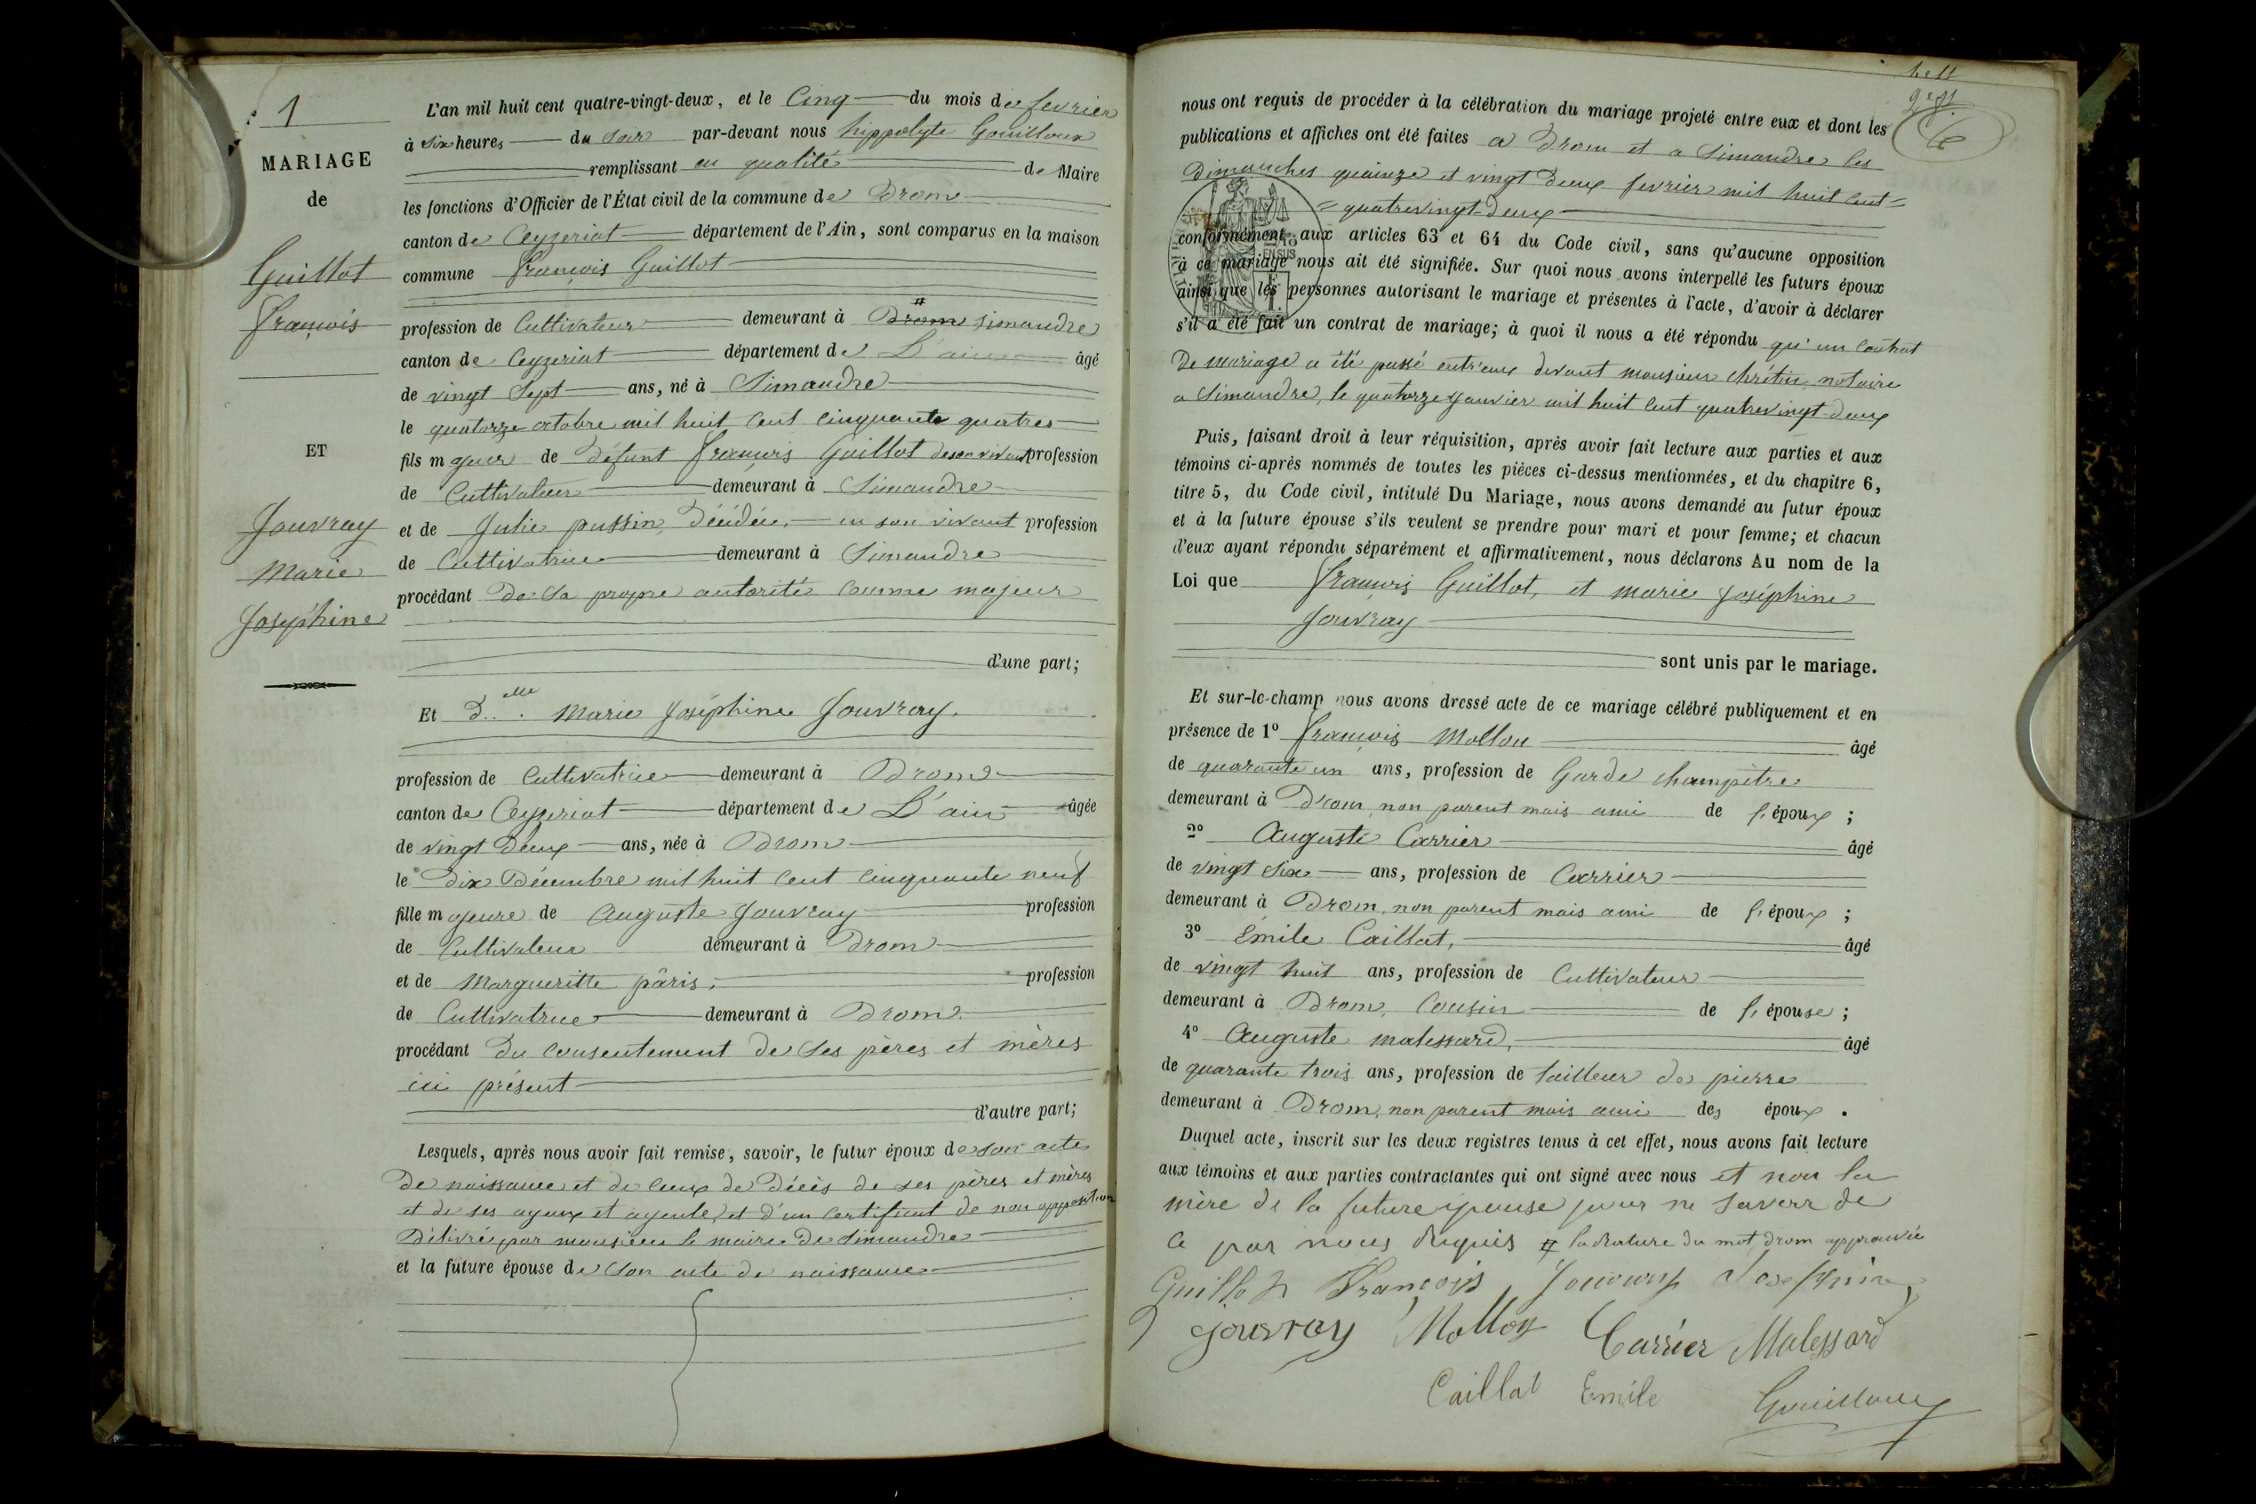 1
MARIAGE
de
Guillot
François
ET
Jouvray
Marie
Joséphine
L'an mil huit cent quatre-vingt-deux, et le Cinq du mois de fevrier
à six heures du soir par-devant nous hippolyte Gouilloux
remplissant en qualité de Maire
les fonctions d'Officier de l'État civil de la commune de Drom
canton de Ceyzeriat département de l'Ain, sont comparus en la maison
commune François Guillot
profession de Cultivateur demeurant à Drom simandre
canton de Ceyzeriat département de L'ain âgé
de vingt Sept ans, né à Simandre
le quatorze octobre mil huit cent cinquante quatres
fils majeur de défunt François Guillot de son vivant profession
de Cultivateur demeurant à Simandre
et de Julie pussin, Décédée, en son vivant profession
de Cultivatrice demeurant à Simandre
procédant de sa propre autorité comme majeur
d'une part;
Et D.elle Marie Joséphine Jouvray.
profession de Cultivatrice demeurant à Drom
canton de Ceyzeriat département de L'ain âgée
de vingt Deux ans, née à Drom
le Dix Décembre mil huit cent cinquante neuf
fille majeure de Auguste Jouvray profession
de Cultivateur demeurant à Drom
et de Margueritte pâris, profession
de Cultivatrice demeurant à Drom
procédant du consentement de ses pères et mères
ici présent
d'autre part;
Lesquels, après nous avoir fait remise, savoir, le futur époux de son acte
De naissance et de ceux de Décès de ses pères et mères
et de ses ayeux et ayeule, et d'un certificat de non opposition
Délivré par monsieur le maire de Simandre
et la future épouse de son acte de naissance
6
nous ont requis de procéder à la célébration du mariage projeté entre eux et dont les
publications et affiches ont été faites a Drom et a Simandre les
Dimanches quainze et vingt Deux fevrier mil huit cent =
= quatrevingt-deux
conformément aux articles 63 et 64 du Code civil, sans qu'aucune opposition
à ce mariage nous ait été signifiée. Sur quoi nous avons interpellé les futurs époux
ainsi que les personnes autorisant le mariage et présentes à l'acte, d'avoir à déclarer
s'il a été fait un contrat de mariage; à quoi il nous a été répondu qu'un contrat
De mariage a été passé entr'eux devant monsieur chrétin notaire
a Simandre, le quatorze Janvier mil huit cent quatrevingt-deux
Puis, faisant droit à leur réquisition, après avoir fait lecture aux parties et aux
témoins ci-après nommés de toutes les pièces ci-dessus mentionnées, et du chapitre 6,
titre 5, du Code civil, intitulé Du Mariage, nous avons demandé au futur époux
et à la future épouse s'ils veulent se prendre pour mari et pour femme; et chacun
d'eux ayant répondu séparément et affirmativement, nous déclarons Au nom de la
Loi que François Guillot, et marie Joséphine
Jouvray
sont unis par le mariage.
Et sur-le-champ nous avons dressé acte de ce mariage célébré publiquement et en
présence de 1º François Mollon âgé
de quarante un ans, profession de Garde champêtre
demeurant à Drom, non parent mais ami de l'époux ;
2º Auguste Carrier âgé
de vingt six ans, profession de Carrier
demeurant à Drom, non parent mais ami de l'époux ;
3º Emile Caillat, âgé
de vingt huit ans, profession de Cultivateur
demeurant à Drom, Cousin de l'épouse ;
4º Auguste malessard, âgé
de quarante trois ans, profession de tailleur de pierre
demeurant à Drom, non parent mais ami des époux .
Duquel acte, inscrit sur les deux registres tenus à cet effet, nous avons fait lecture
aux témoins et aux parties contractantes qui ont signé avec nous et non la
mère de la future épouse pour ne savoir de
ce par nous Requis # la Rature du mot drom approuvée
Guillot François, Jouvray Josephine
Jouvray Mollon Carrier Malessard
Caillat Emile Gouilloux